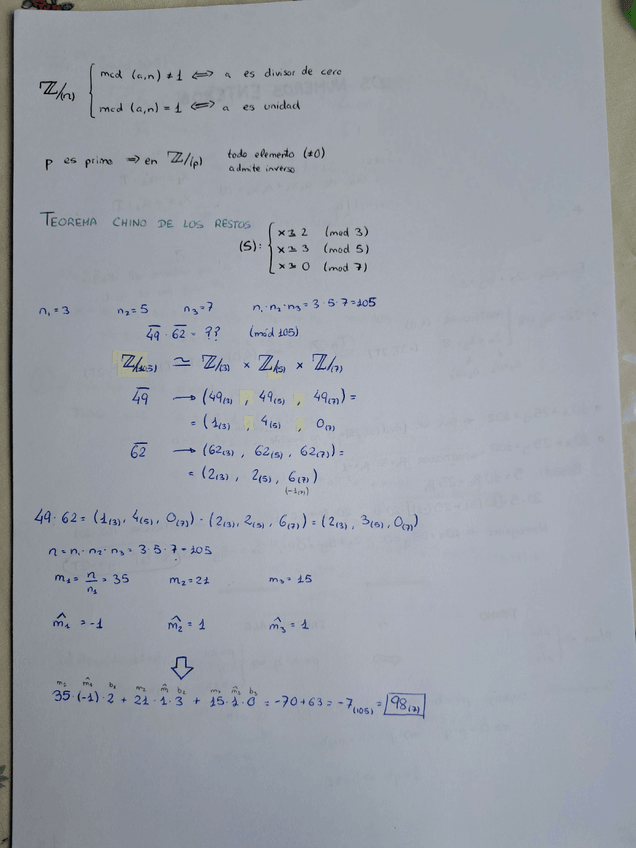 ℤ/(n) { mcd (a,n) ≠ 1 ⟺ a es divisor de cero
mcd (a,n) = 1 ⟺ a es unidad
p es primo ⟹ en ℤ/(p) todo elemento (≠0)
admite inverso
TEOREMA CHINO DE LOS RESTOS
(S): { x ≡ 2 (mod 3)
x ≡ 3 (mod 5)
x ≡ 0 (mod 7)
n₁ = 3 n₂ = 5 n₃ = 7 n₁·n₂·n₃ = 3·5·7 = 105
4̅9̅ · 6̅2̅ = ?? (mód 105)
ℤ/(105) ≃ ℤ/(3) × ℤ/(5) × ℤ/(7)
4̅9̅ ⟶ (49₍₃₎, 49₍₅₎, 49₍₇₎) =
= (1₍₃₎, 4₍₅₎, 0₍₇₎)
6̅2̅ ⟶ (62₍₃₎, 62₍₅₎, 62₍₇₎) =
= (2₍₃₎, 2₍₅₎, 6₍₇₎)
(-1₍₇₎)
49·62 = (1₍₃₎, 4₍₅₎, 0₍₇₎) · (2₍₃₎, 2₍₅₎, 6₍₇₎) = (2₍₃₎, 3₍₅₎, 0₍₇₎)
n = n₁·n₂·n₃ = 3·5·7 = 105
m₁ = n/n₁ = 35 m₂ = 21 m₃ = 15
m̂₁ = -1 m̂₂ = 1 m̂₃ = 1
⇩
m₁ m̂₁ b₁ m₂ m̂ b₂ m₃ m̂₃ b₃
35·(-1)·2 + 21·1·3 + 15·1·0 = -70+63 = -7₍₁₀₅₎ = 98₍₇₎